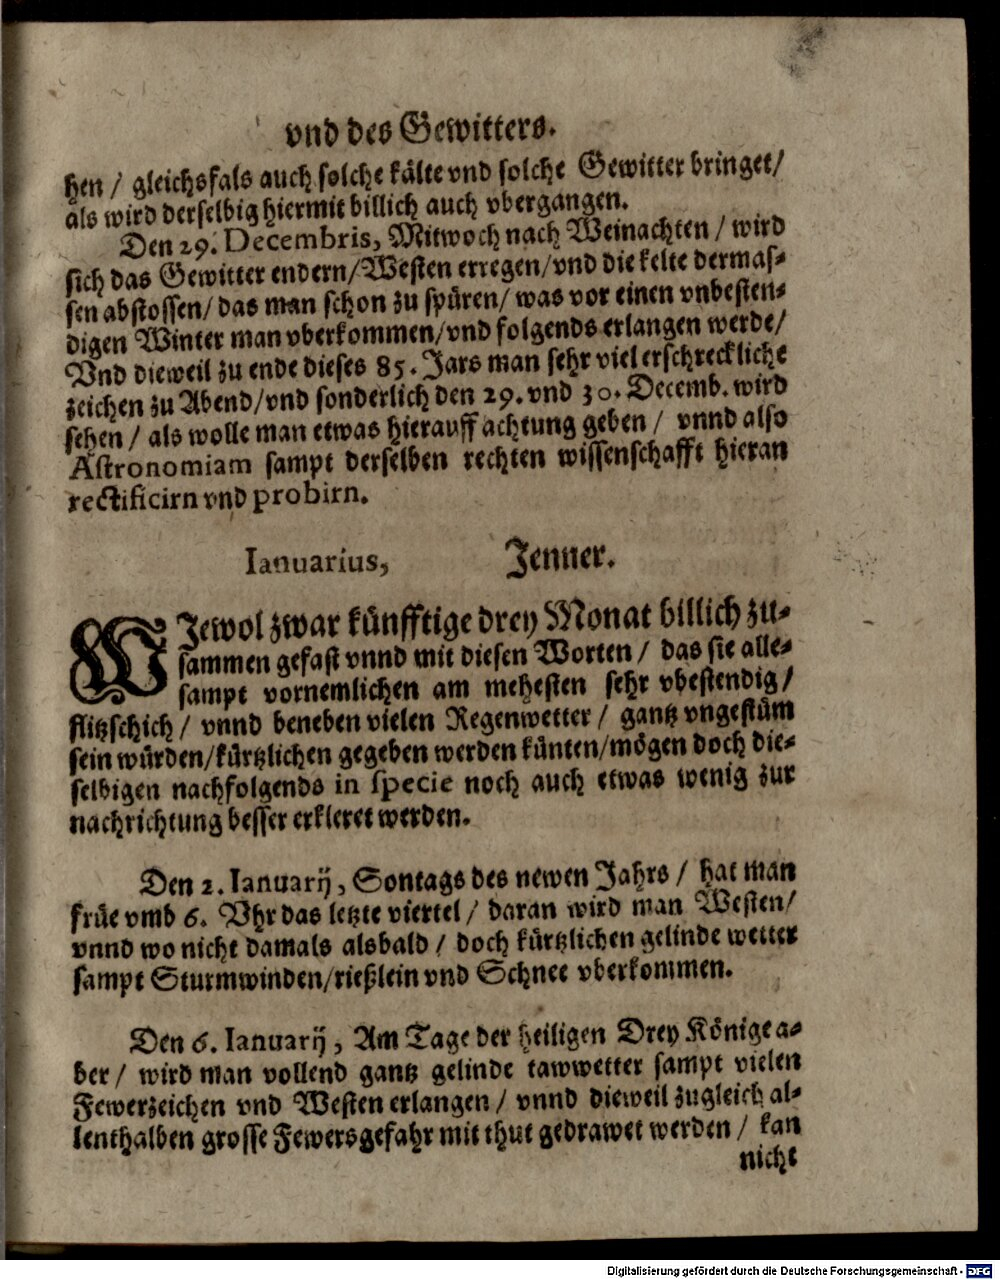 vnd des Gewitters.
hen / gleichsfals auch solche kälte vnd solche Gewitter bringet/
als wird derselbig hiermit billich auch vbergangen.
Den 29. Decembris, Mitwoch nach Weinachten / wird
sich das Gewitter endern/Westen erregen/vnd die kelte dermas-
sen abstossen/ das man schon zu spüren/ was vor einen vnbesten-
digen Winter man vberkommen/vnd folgends erlangen werde/
Vnd dieweil zu ende dieses 85. Jars man sehr viel erschreckliche
zeichen zu Abend/vnd sonderlich den 29. vnd 30. Decemb. wird
sehen / als wolle man etwas hierauff achtung geben / vnnd also
Astronomiam sampt derselben rechten wissenschafft hieran
rectificirn vnd probirn.
Ianuarius, Jenner.
WJewol zwar künfftige drey Monat billich zu-
sammen gefast vnnd mit diesen Worten / das sie alle-
sampt vornemlichen am mehesten sehr vbestendig/
flitzschich / vnnd beneben vielen Regenwetter / gantz vngestüm
sein würden/kürtzlichen gegeben werden künten/mögen doch die-
selbigen nachfolgends in specie noch auch etwas wenig zur
nachrichtung besser erkleret werden.
Den 2. Ianuarij, Sontags des newen Jahrs / hat man
früe vmb 6. Vhr das letzte viertel / daran wird man Westen/
vnnd wo nicht damals alsbald / doch kürtzlichen gelinde wetter
sampt Sturmwinden/rießlein vnd Schnee vberkommen.
Den 6. Ianuarij, Am Tage der heiligen Drey Könige a-
ber / wird man vollend gantz gelinde tawwetter sampt vielen
Fewerzeichen vnd Westen erlangen / vnnd dieweil zugleich al-
lenthalben grosse Fewersgefahr mit thut gedrawet werden / kan
nicht
Digitalisierung gefördert durch die Deutsche Forschungsgemeinschaft - DFG